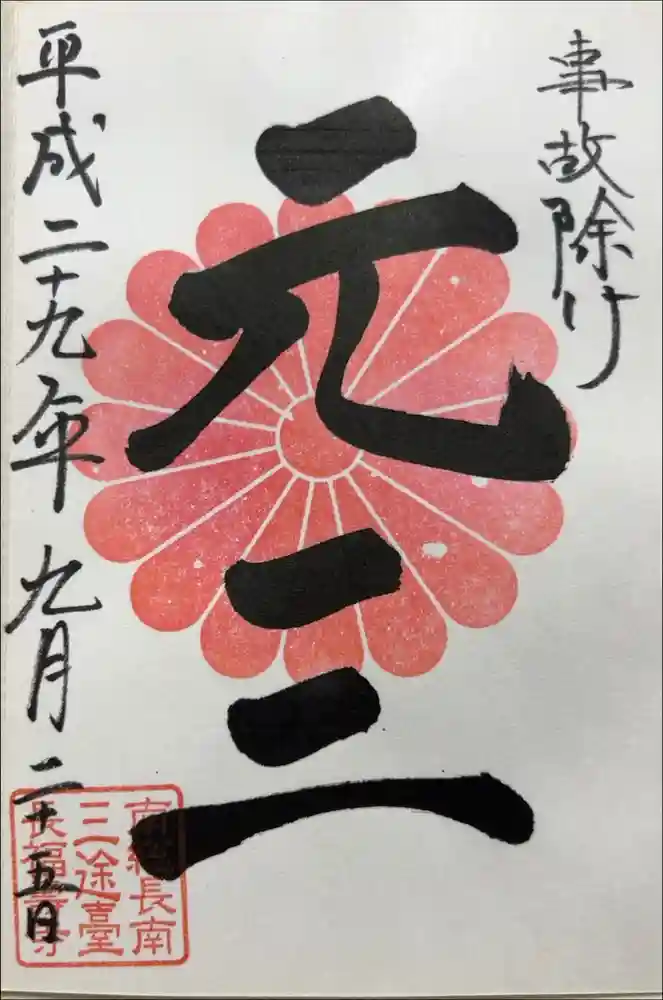 事故除け
元三
平成二十九年九月二十五日
南総長南
三途臺
長福壽寺